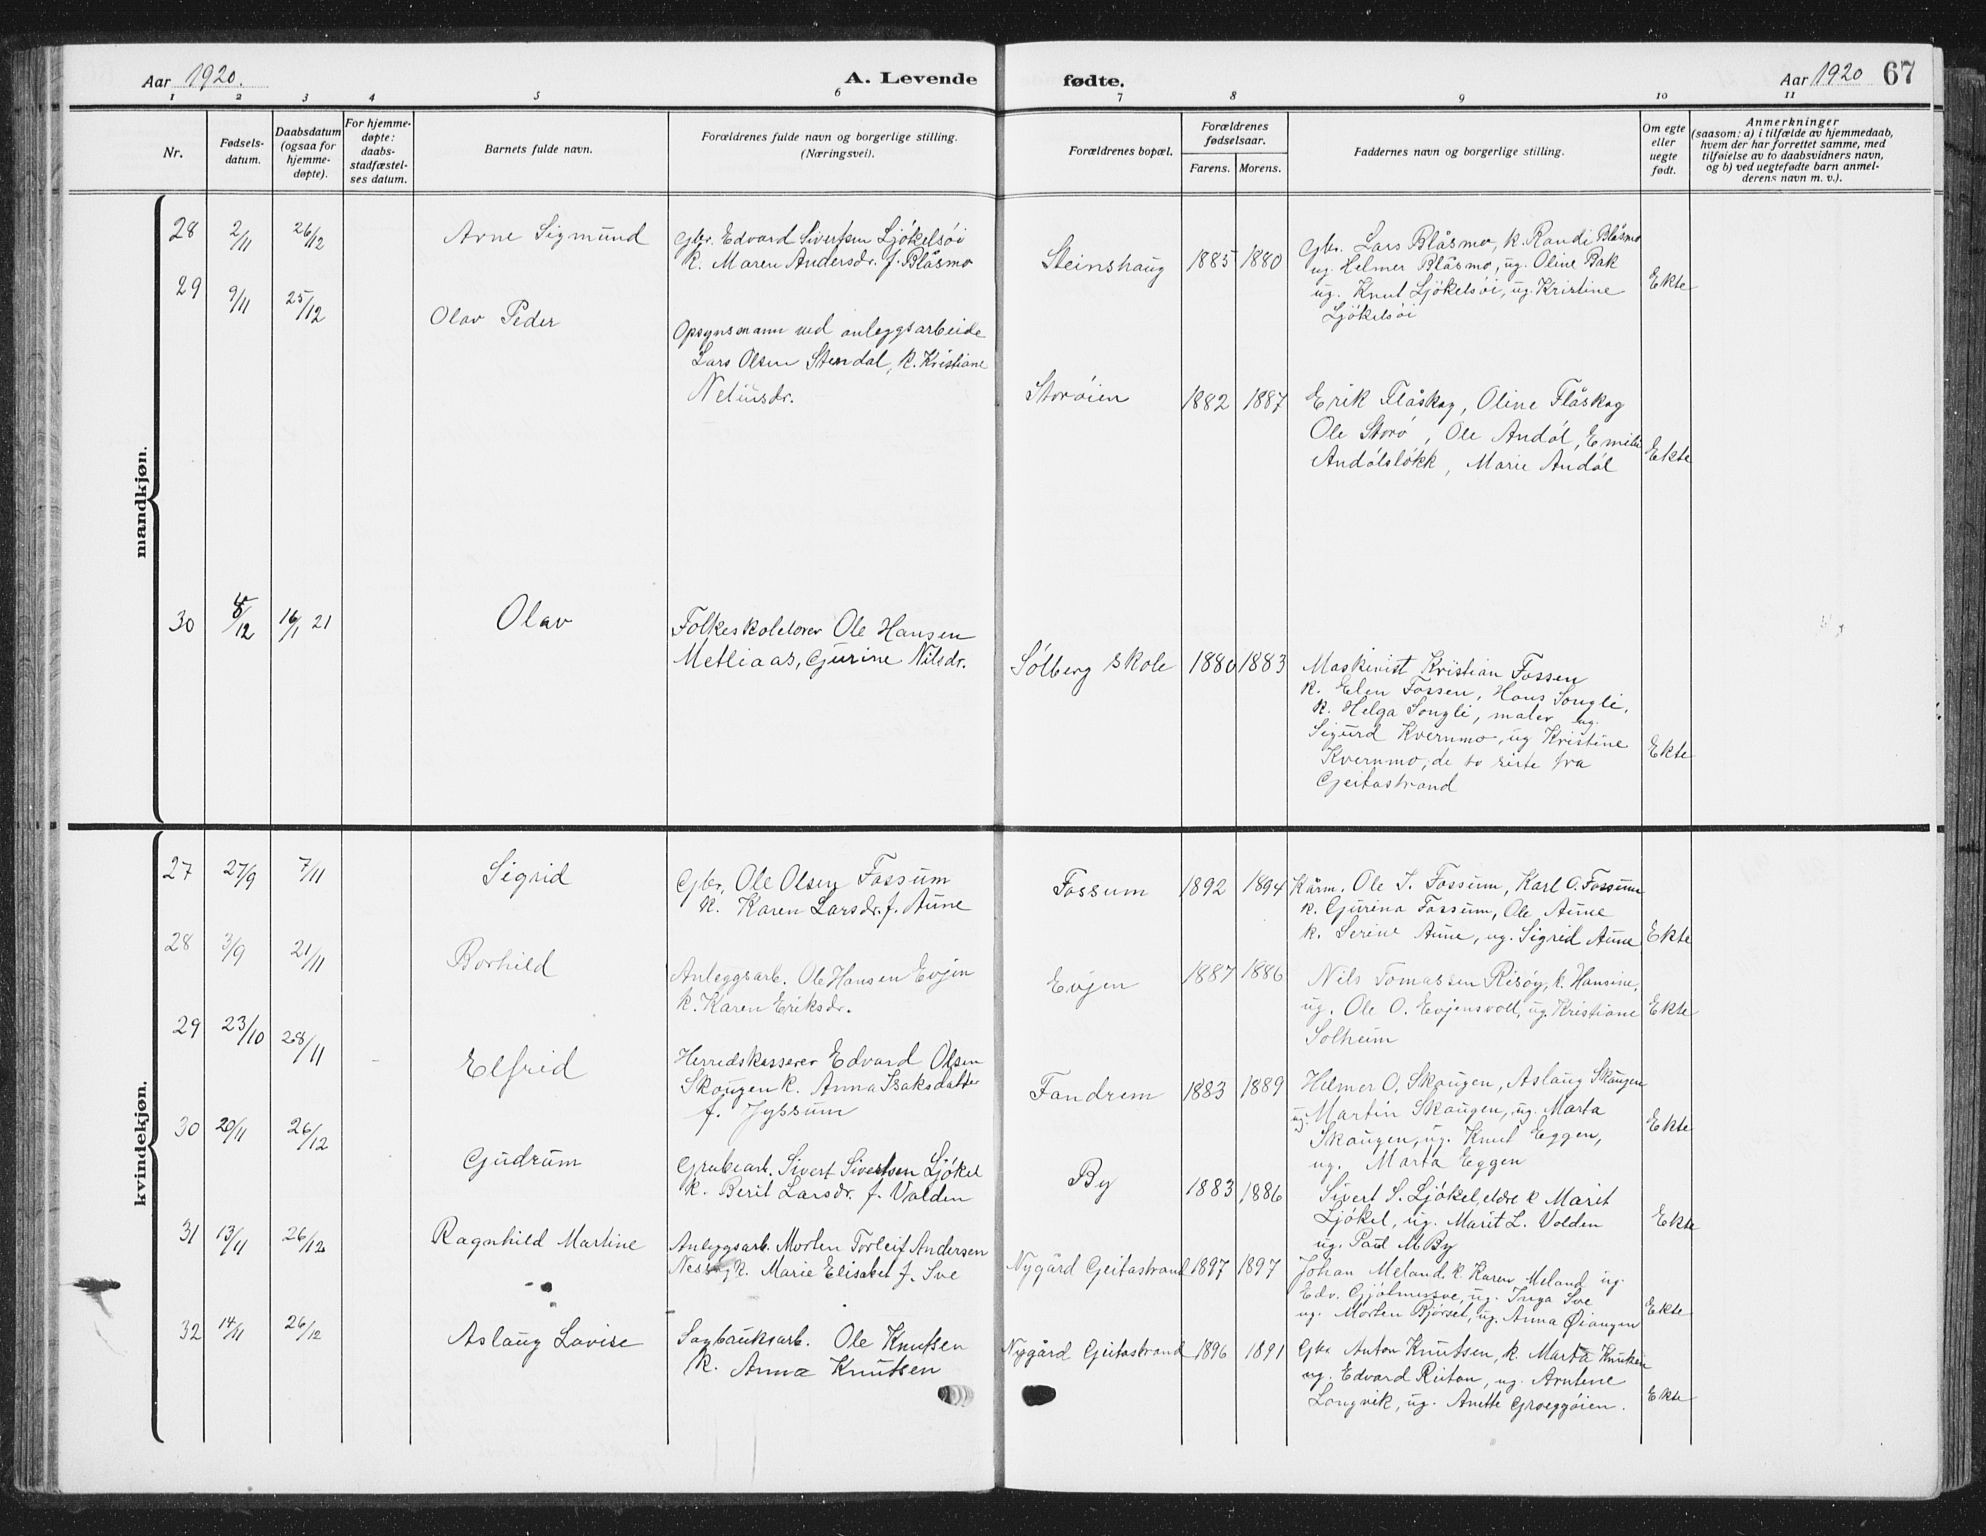 Aar 1920. A. Levende fødte. Aar 1920 67
1 2 3 4 5 6 7 8 9 10 11
Nr.
Fødsels-
datum.
Daabsdatum
(ogsaa for
hjemme-
døpte).
For hjemme-
døpte:
daabs-
stadfæstel-
ses datum.
Barnets fulde navn.
Forældrenes fulde navn og borgerlige stilling.
(Næringsvei).
Forældrenes bopæl.
Forældrenes
fødselsaar.
Farens. Morens.
Faddernes navn og borgerlige stilling.
Om egte
eller
uegte
født.
Anmerkninger
(saasom: a) i tilfælde av hjemmedaab,
hvem der har forrettet samme, med
tilføielse av to daabsvidners navn,
og b) ved uegtefødte barn anmel-
derens navn m. v.).
mandkjøn.
28 2/11 26/12 Arne Sigmund
Gbr. Edvard Sivertsen Ljökelsöi
k. Maren Andersdr. f. Blåsmo
Steinshaug 1885 1880
Gbr. Lars Blåsmo, k. Randi Blåsmo
ug. Helmer Blåsmo, ug. Oline Bak
ug. Knut Ljökelsöi, ug. Kristine
Ljökelsöi
Ekte
29 9/11 25/12 Olav Peder
Opsynsmann ved anleggsarbeide
Lars Olsen Stendal, k. Kristiane
Neliusdr.
Storöien 1882 1887
Erik Flåskag, Oline Flåskag
Ole Storö, Ole Andöl, Emilie
Andölslökk, Marie Andöl
Ekte
30 8/12 16/1 21 Olav
Folkeskolelærer Ole Hansen
Metliaas, Gjurine Nilsdr.
Sölberg skole 1880 1883
Maskinist Kristian Fossen
k. Elen Fossen, Hans Songli,
k. Helga Songli, maler ug.
Sigurd Kvernmo, ug Kristine
Kvernmo, de to siste fra
Geitastrand
Ekte
kvindekjøn.
27 27/9 7/11 Sigrid
Gbr. Ole Olsen Fossum
k. Karen Larsdr. f. Aune
Fossum 1892 1894
Kårm. Ole I. Fossum, Karl O. Fossum
k. Gjurina Fossum, Ole Aune
k. Serine Aune, ug. Sigrid Aune
Ekte
28 3/9 21/11 Borhild
Anleggsarb. Ole Hansen Evjen
k. Karen Eriksdr.
Evjen 1887 1886
Nils Tomassen Risöy, k. Hansine,
ug. Ole O. Evjensvoll, ug. Kristiane
Solheim
Ekte
29 23/10 28/11 Elfrid
Herredskasserer Edvard Olsen
Skougen k. Anna Isaksdatter
f. Jyssum
Fandrem 1883 1889
Helmer O. Skougen, Aslaug Skougen
ug. Martin Skougen, ug. Marta
Skougen, ug. Knut Eggen,
ug. Marta Eggen
Ekte
30 20/11 26/12 Gudrum
Grubearb. Sivert Sivertsen Ljökel
k. Berit Larsdr. f. Volden
By 1883 1886
Sivert S. Ljökel, eldre k Marit
Ljökel, ug. Marit L. Volden
ug. Paul M By
Ekte
31 13/11 26/12 Ragnhild Martine
Anleggsarb. Morten Torleif Andersen
k. Marie Elisabet f. Sve
Nygård Geitastrand 1897 1897
Johan Meland k. Karen Meland ug.
Edv. Gjölmesve, ug. Inga Sve
ug. Morten Bjørset, ug. Anna Øiangen
Ekte
32 14/11 26/12 Aslaug Lovise
Sagbruksarb. Ole Knutsen
k. Anna Knutsen
Nygård Geitastrand 1896 1891
Gbr Anton Knutsen, k. Marta Knutsen
ug. Edvard Ritan, ug. Arntine
Longvik, ug. Anette Groeggöien.
Ekte